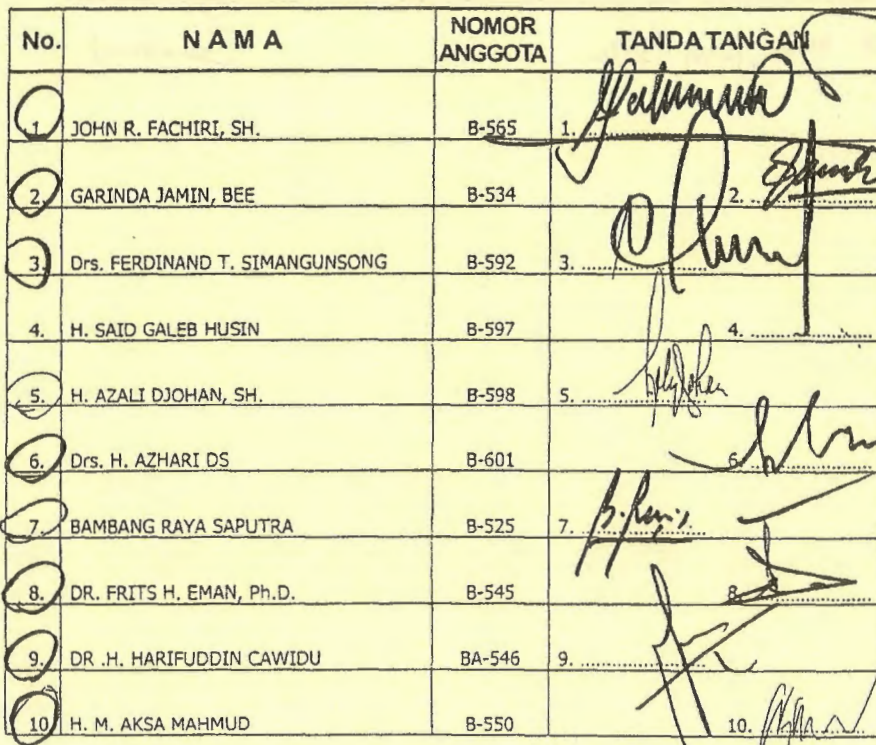 No. N A M A NOMOR ANGGOTA TANDA TANGAN
1. JOHN R. FACHIRI, SH. B-565 1. ....................
2. GARINDA JAMIN, BEE B-534 2. ....................
3. Drs. FERDINAND T. SIMANGUNSONG B-592 3. ....................
4. H. SAID GALEB HUSIN B-597 4. ....................
5. H. AZALI DJOHAN, SH. B-598 5. ....................
6. Drs. H. AZHARI DS B-601 6. ....................
7. BAMBANG RAYA SAPUTRA B-525 7. ....................
8. DR. FRITS H. EMAN, Ph.D. B-545 8. ....................
9. DR .H. HARIFUDDIN CAWIDU BA-546 9. ....................
10 H. M. AKSA MAHMUD B-550 10. ....................